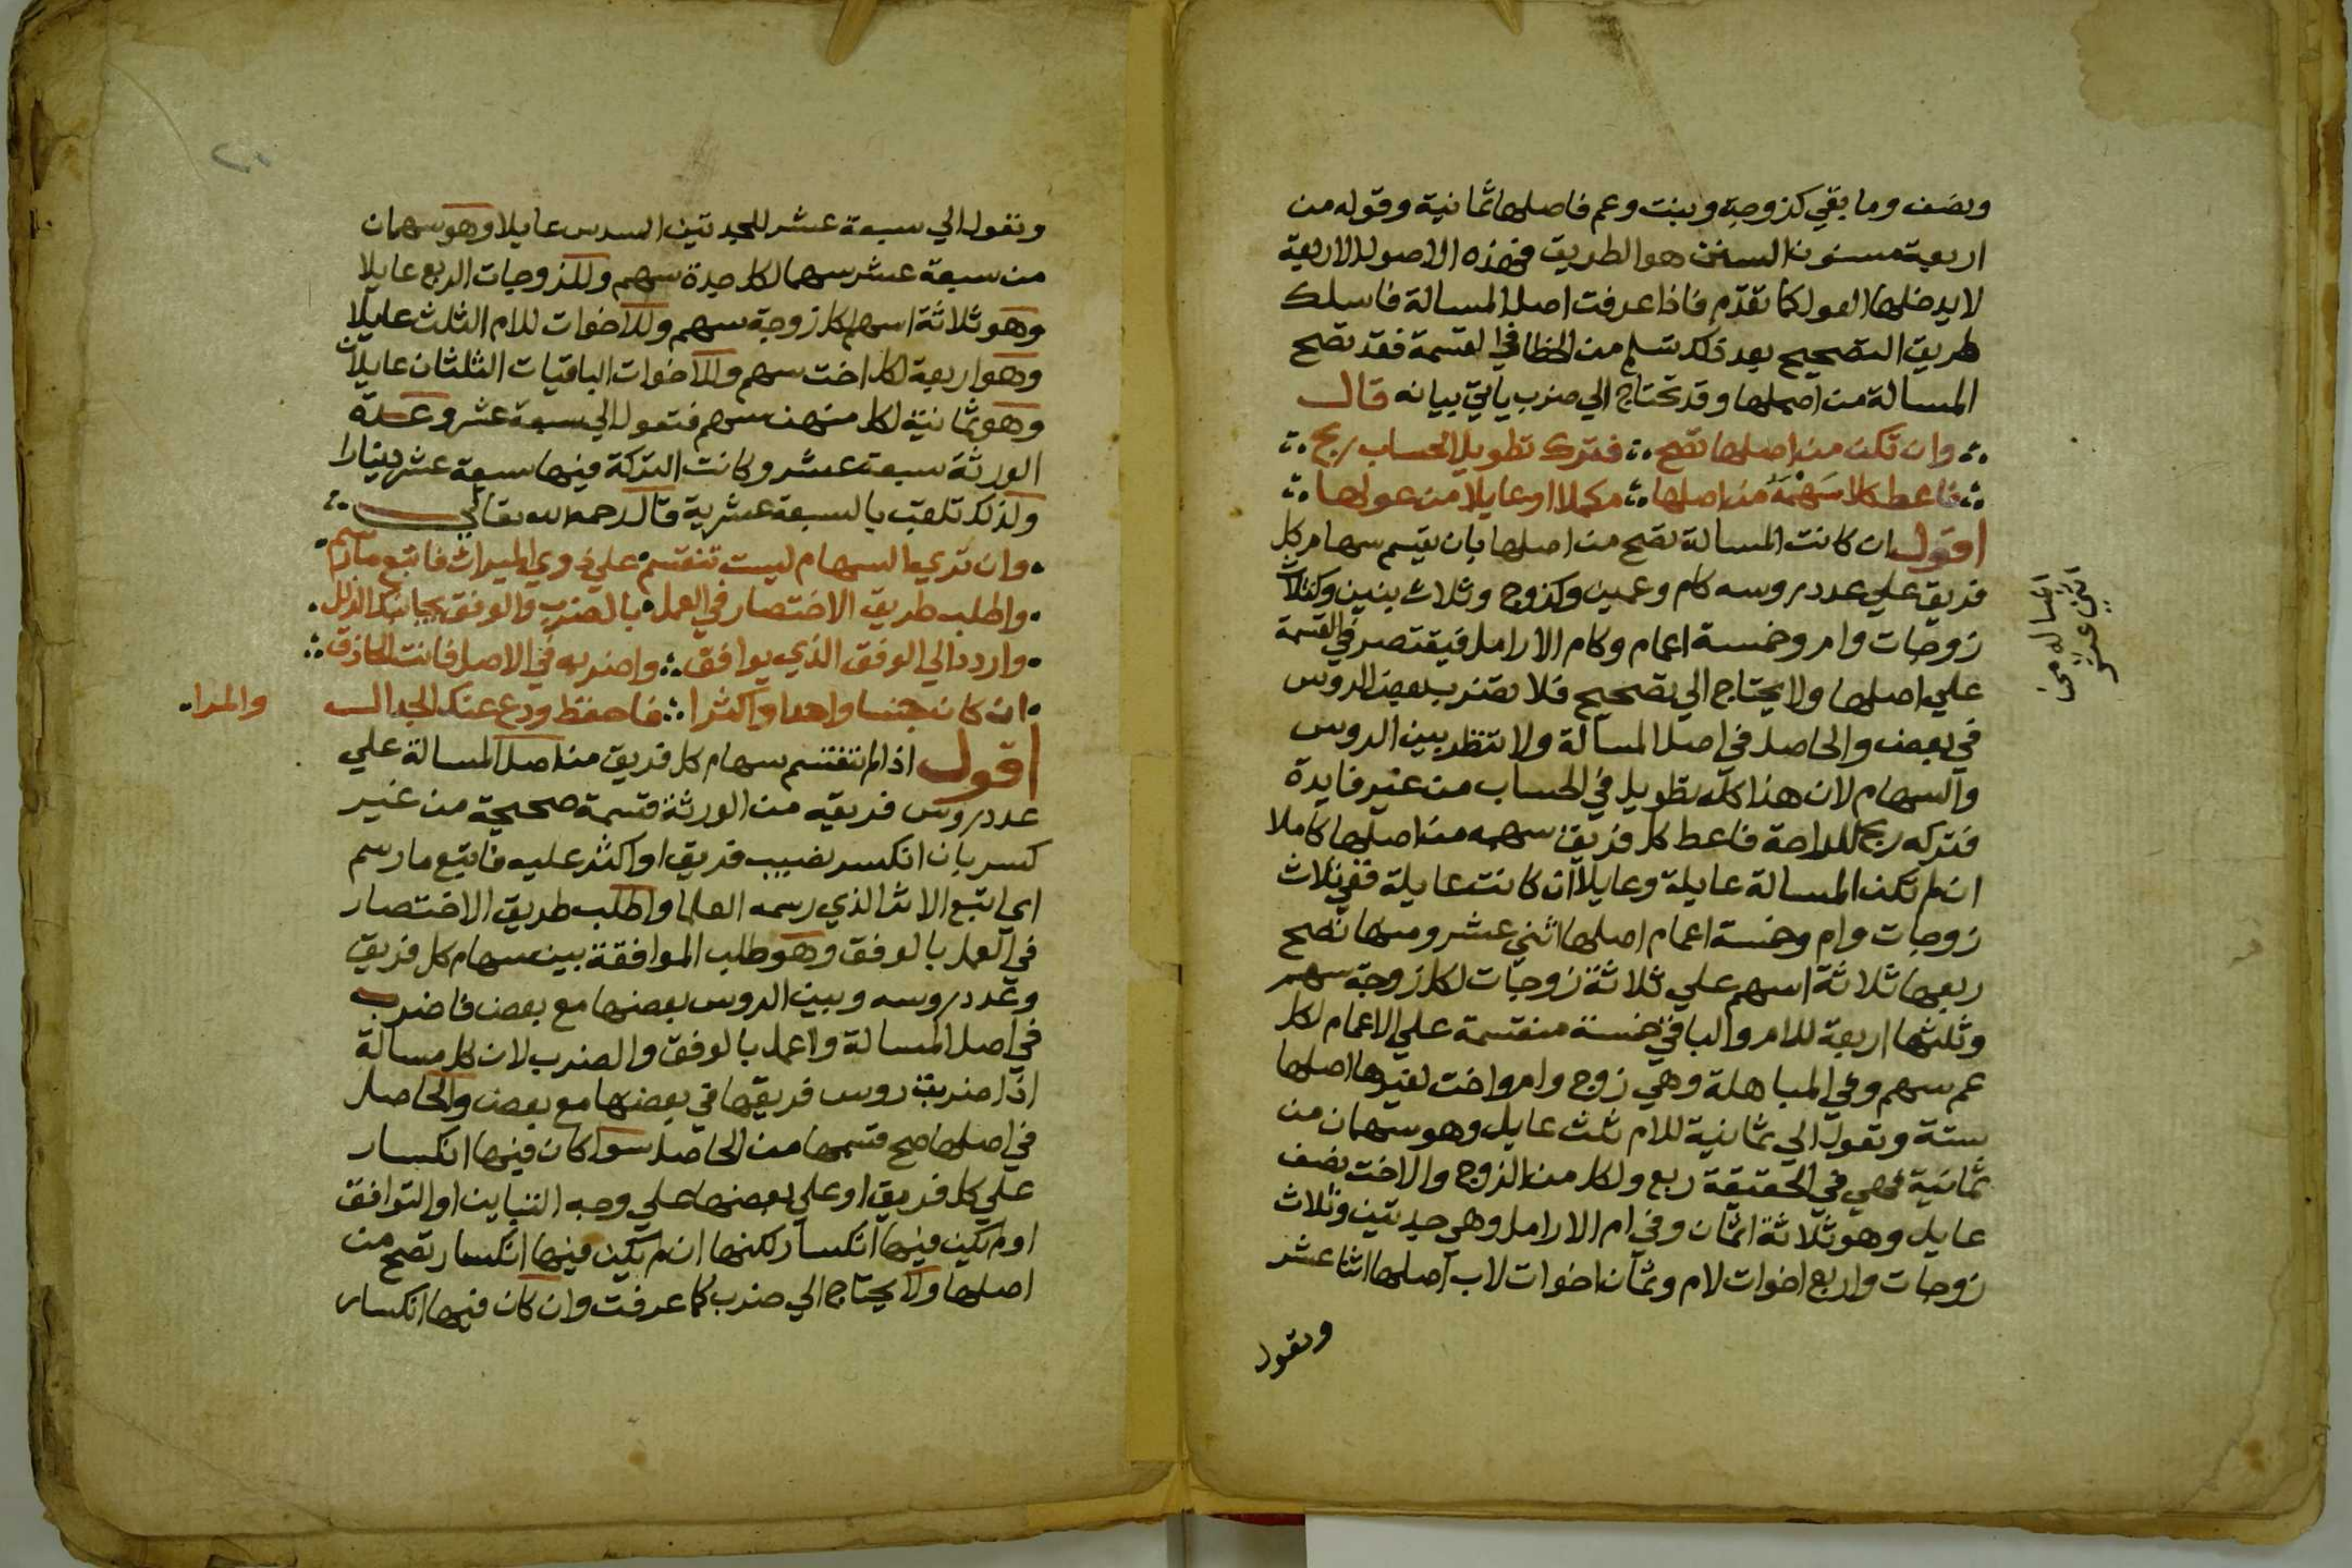 ونصف وما بقي كزوجة وبنت وعم فاصلها ثمانية وقوله من
اربعة مسنون السنن هو الطريق فهذه الاصول الاربعة
لا يدخلها العول كما تقدم فاذا عرفت اصل المسالة فاسلك
طريق التصحيح بعد ذلك تسلم من الخطا في القسمة فقد تصح
المسالة من اصلها وقد تحتاج الي ضرب ياتي بيانه قال
وان تكن من اصلها تصح فترك تطويل الحساب ربح
فاعط كلا سهمه من اصلها مكملا او عايلا من عولها
اقول ان كانت المسالة تصح من اصلها بان يقسم سهام كل
فريق علي عدد روسه كام وعمين وكزوج وثلاث بنين وكثلاث
زوجات وام وخمسة اعمام وكام الارامل فيقتصر في القسمة
علي اصلها ولا يحتاج الي تصحيح فلا تضرب بعض الروس
في بعض والحاصل في اصل المسالة ولا تنظر بين الروس
والسهام لان هذا كله تطويل في الحساب من غير فايدة
فتركه ربح للراحة فاعط كل فريق سهمه من اصلها كاملا
ان لم تكن المسالة عايلة وعايلا ان كانت عايلة ففي ثلاث
زوجات وام وخمسة اعمام اصلها اثني عشر ومنها تصح
ربعها ثلاثة اسهم علي ثلاثة زوجات لكل زوجة سهم
وثلثها اربعة للام والباقي خمسة منقسمة علي الاعمام لكل
عم سهم وفي المباهلة وهي زوج وام واخت لغيرها اصلها
ستة وتعول الي ثمانية للام ثلث عايل وهو سهمان من
ثمانية فهي في الحقيقة ربع ولكل من الزوج والاخت نصف
عايل وهو ثلاثة اثمان وفي ام الارامل وهي جدتين وثلاث
زوجات واربع اخوات لام وثمان اخوات لاب اصلها اثنا عشر
وتعول
المسالة من
اثني عشر
وتعول الي سبعة عشر للجدتين السدس عايلا وهو سهمان
من سبعة عشر سهما لكل جدة سهم وللزوجات الربع عايلا
وهو ثلاثة اسهم لكل زوجة سهم وللاخوات للام الثلث عايلا
وهو اربعة لكل اخت سهم وللاخوات الباقيات الثلثان عايلان
وهو ثمانية لكل منهن سهم فتعول الي سبعة عشر وعدة
الورثة سبعة عشر وكانت التركة فيها سبعة عشر دينارا
ولذلك تلقب بالسبعة عشرية قال رحمه الله تعالي
وان تري السهام ليست تنقسم علي ذوي الميراث فاتبع ما رسم
واطلب طريق الاختصار في العمل بالضرب والوفق يجانبك الزلل
واردد الي الوفق الذي يوافق واضربه في الاصل فانت الحاذق
ان كان جنسا واحدا واكثرا فاحفظ ودع عنك الجدال والمرا
اقول اذا لم تنقسم سهام كل فريق من اصل المسالة علي
عدد روس فريقه من الورثة قسمة صحيحة من غير
كسر بان انكسر نصيب فريق او اكثر عليه فاتبع ما رسم
اي اتبع الاثر الذي رسمه العلما واطلب طريق الاختصار
في العمل بالوفق وهو طلب الموافقة بين سهام كل فريق
وعدد روسه وبين الروس بعضها مع بعض فاضرب
في اصل المسالة واعمل بالوفق والضرب لان كل مسالة
اذا ضربت روس فريقها في بعضها مع بعض والحاصل
في اصلها صح قسمها من الحاصل سوا كان فيها انكسار
علي كل فريق او علي بعضها علي وجه التباين او التوافق
او لم يكن فيها انكسار لكنها ان لم يكن فيها انكسار تصح من
اصلها ولا يحتاج الي ضرب كما عرفت وان كان فيها انكسار